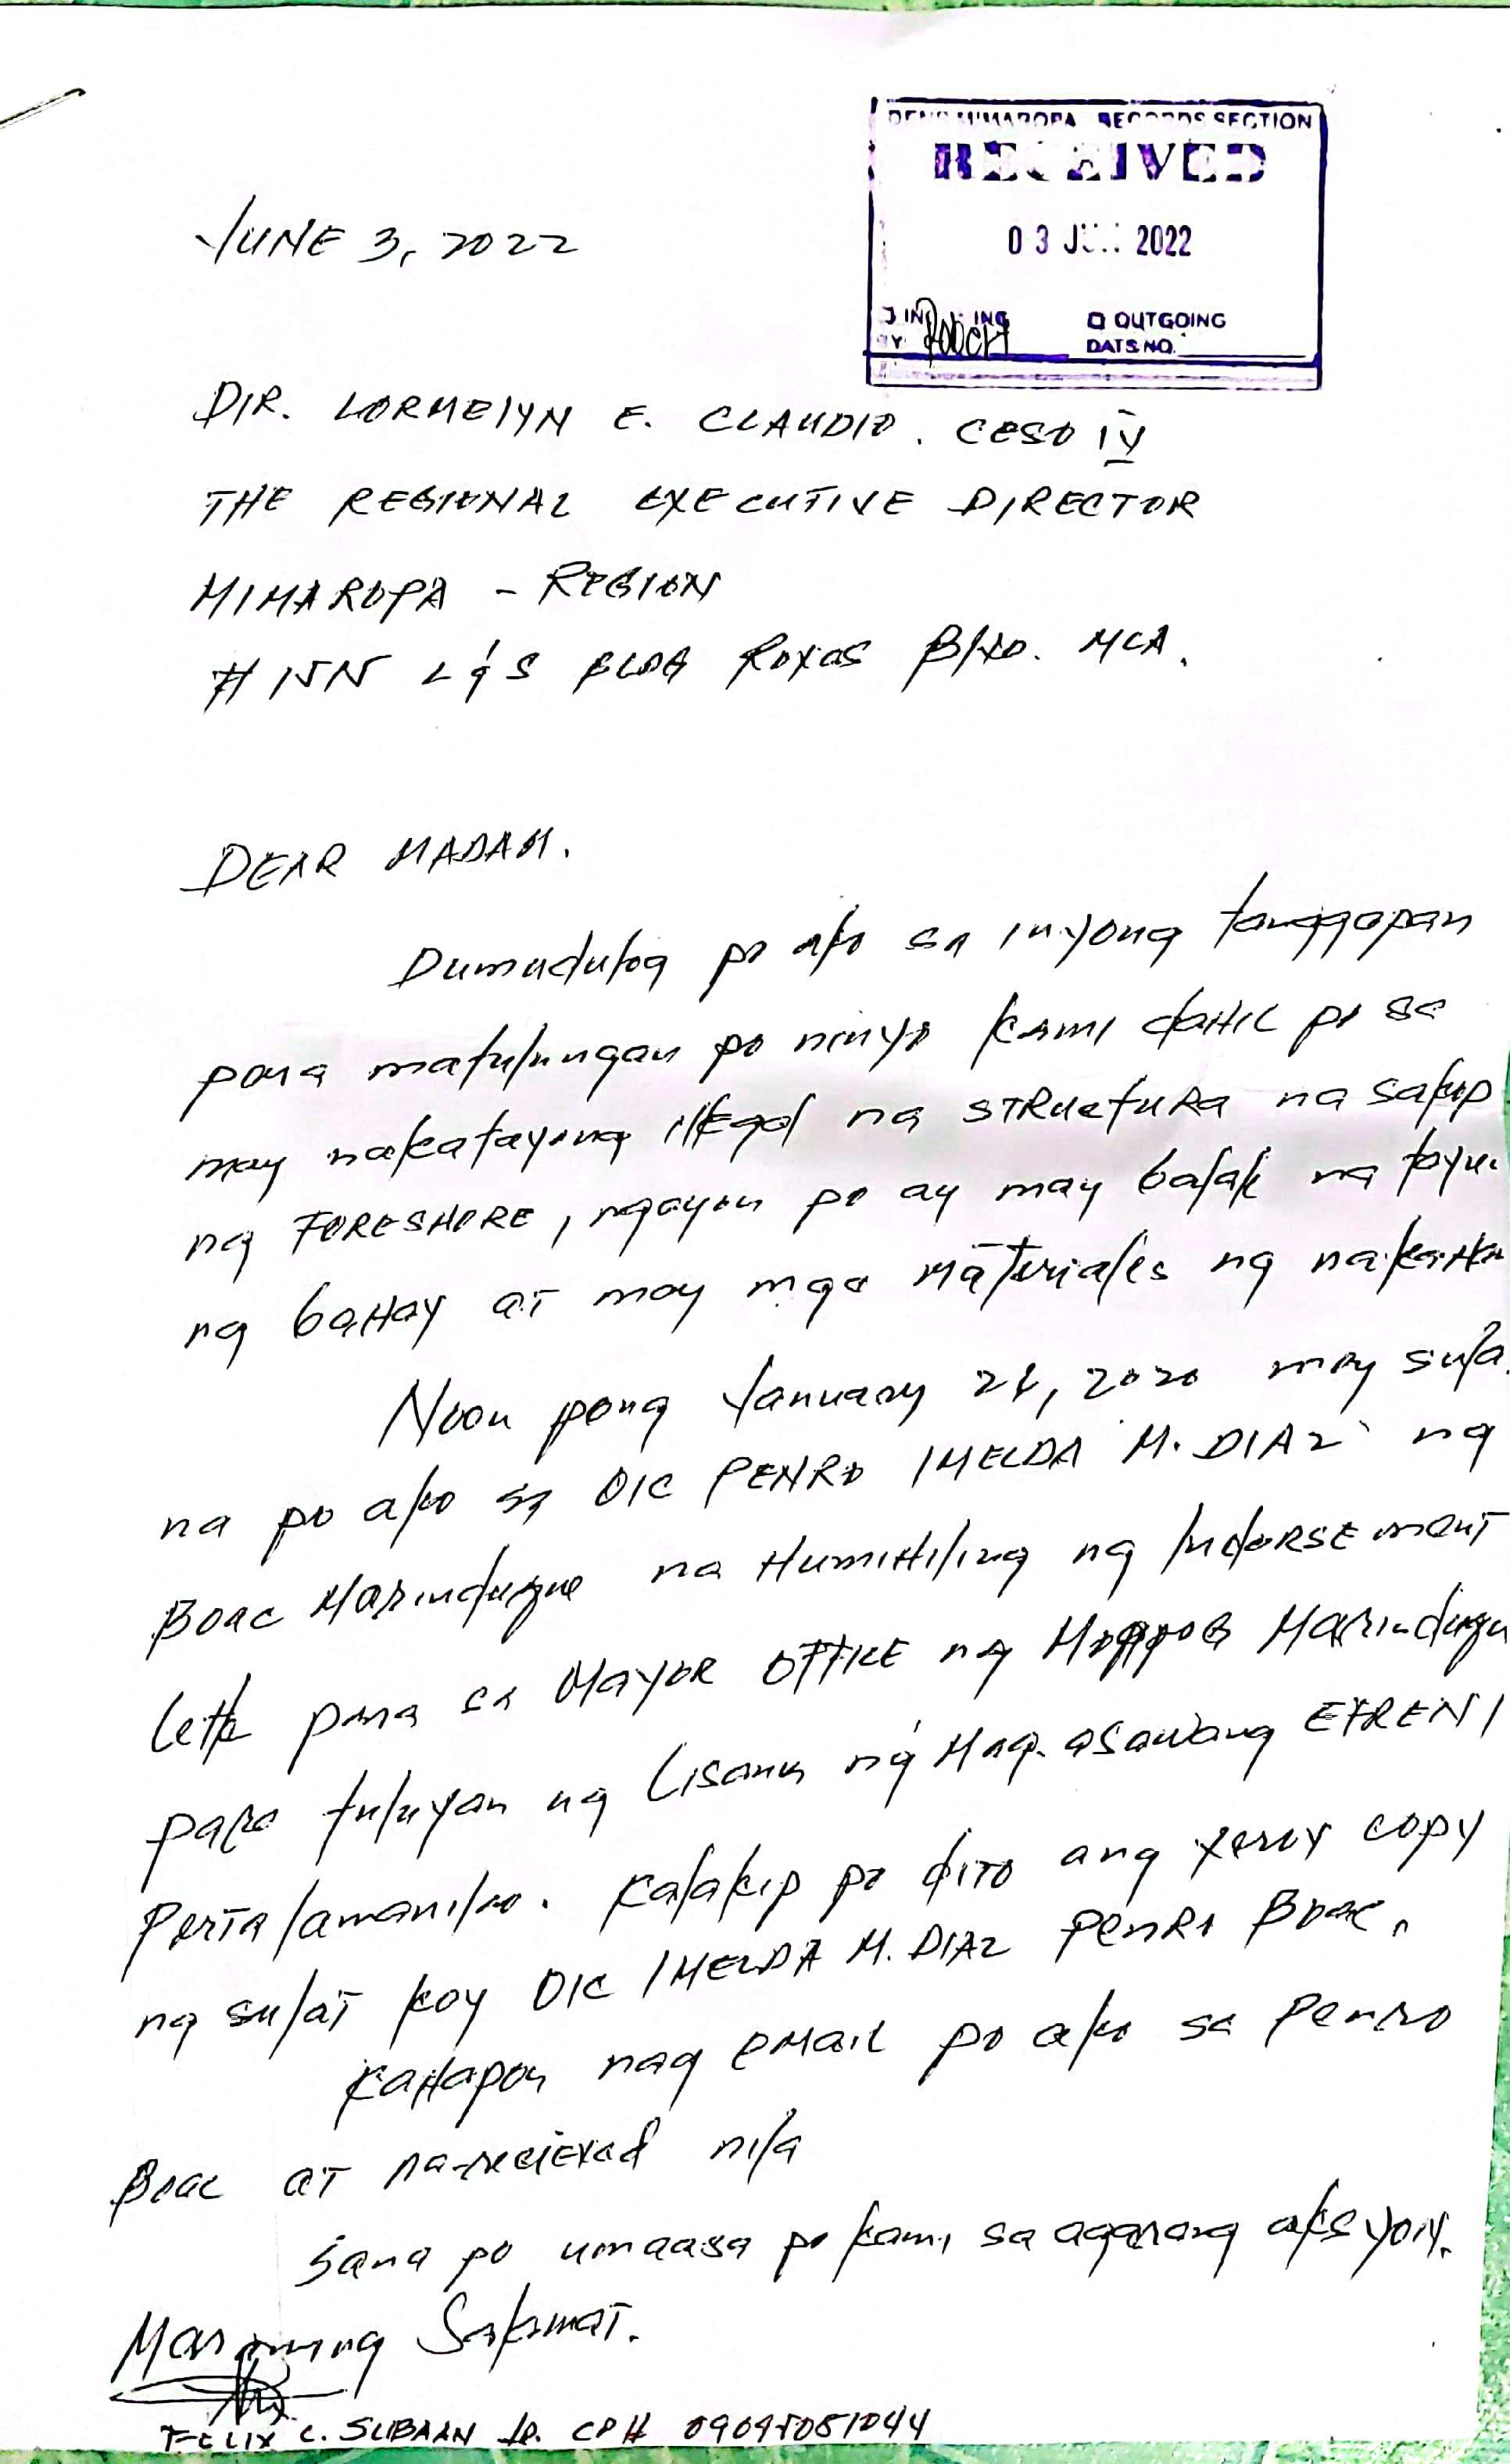 DENR MIMAROPA RECORDS SECTION
RECEIVED
03 JUN 2022
INCOMING
OUTGOING
BY
DATS NO.
JUNE 3, 2022
DIR. LORMELYN E. CLAUDIO. CESO IV
THE REGIONAL EXECUTIVE DIRECTOR
MIMAROPA - REGION
# 1515 L & S BLDG ROXAS Blvd. MLA.
DEAR MADAM.
Dumudulog po ako sa inyong tanggapan
para matulungan po ninyo kami daHIL po sa
may nakatayong illegal na STRuctuRa na sakop
ng FORESHORE, ngayon po ay may balak na
ng baHay aT may mga Materiales ng
Noon pong January 28, 2020 may
na po ako sa OIC PENRO IMELDA M. DIAZ ng
Boac Marinduque na HumiHiling ng IndoRSEmenT
para sa MayoR OFFICE ng Mogpog
tuluyan ng Lisanin ng Mag-asawang EFREN /
Perta Jamanilao. Kalakip po diTO ang xerox copy
ng sulaT kay OIC IMELDA M. DIAZ PENRO Boac.
KaHapon nag EMAIL po ako sa Penro
Boac aT na-recieved nila
Sana po umaasa po kami sa agarang aksyon.
Maraming SalamaT.
FELIX C. SUBAAN JR. CPH